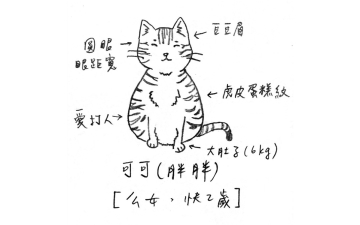 豆豆眉
圓眼
眼距寬
虎皮蛋糕紋
愛打人
大肚子(6kg)
可可(胖胖)
[公女,快2歲]